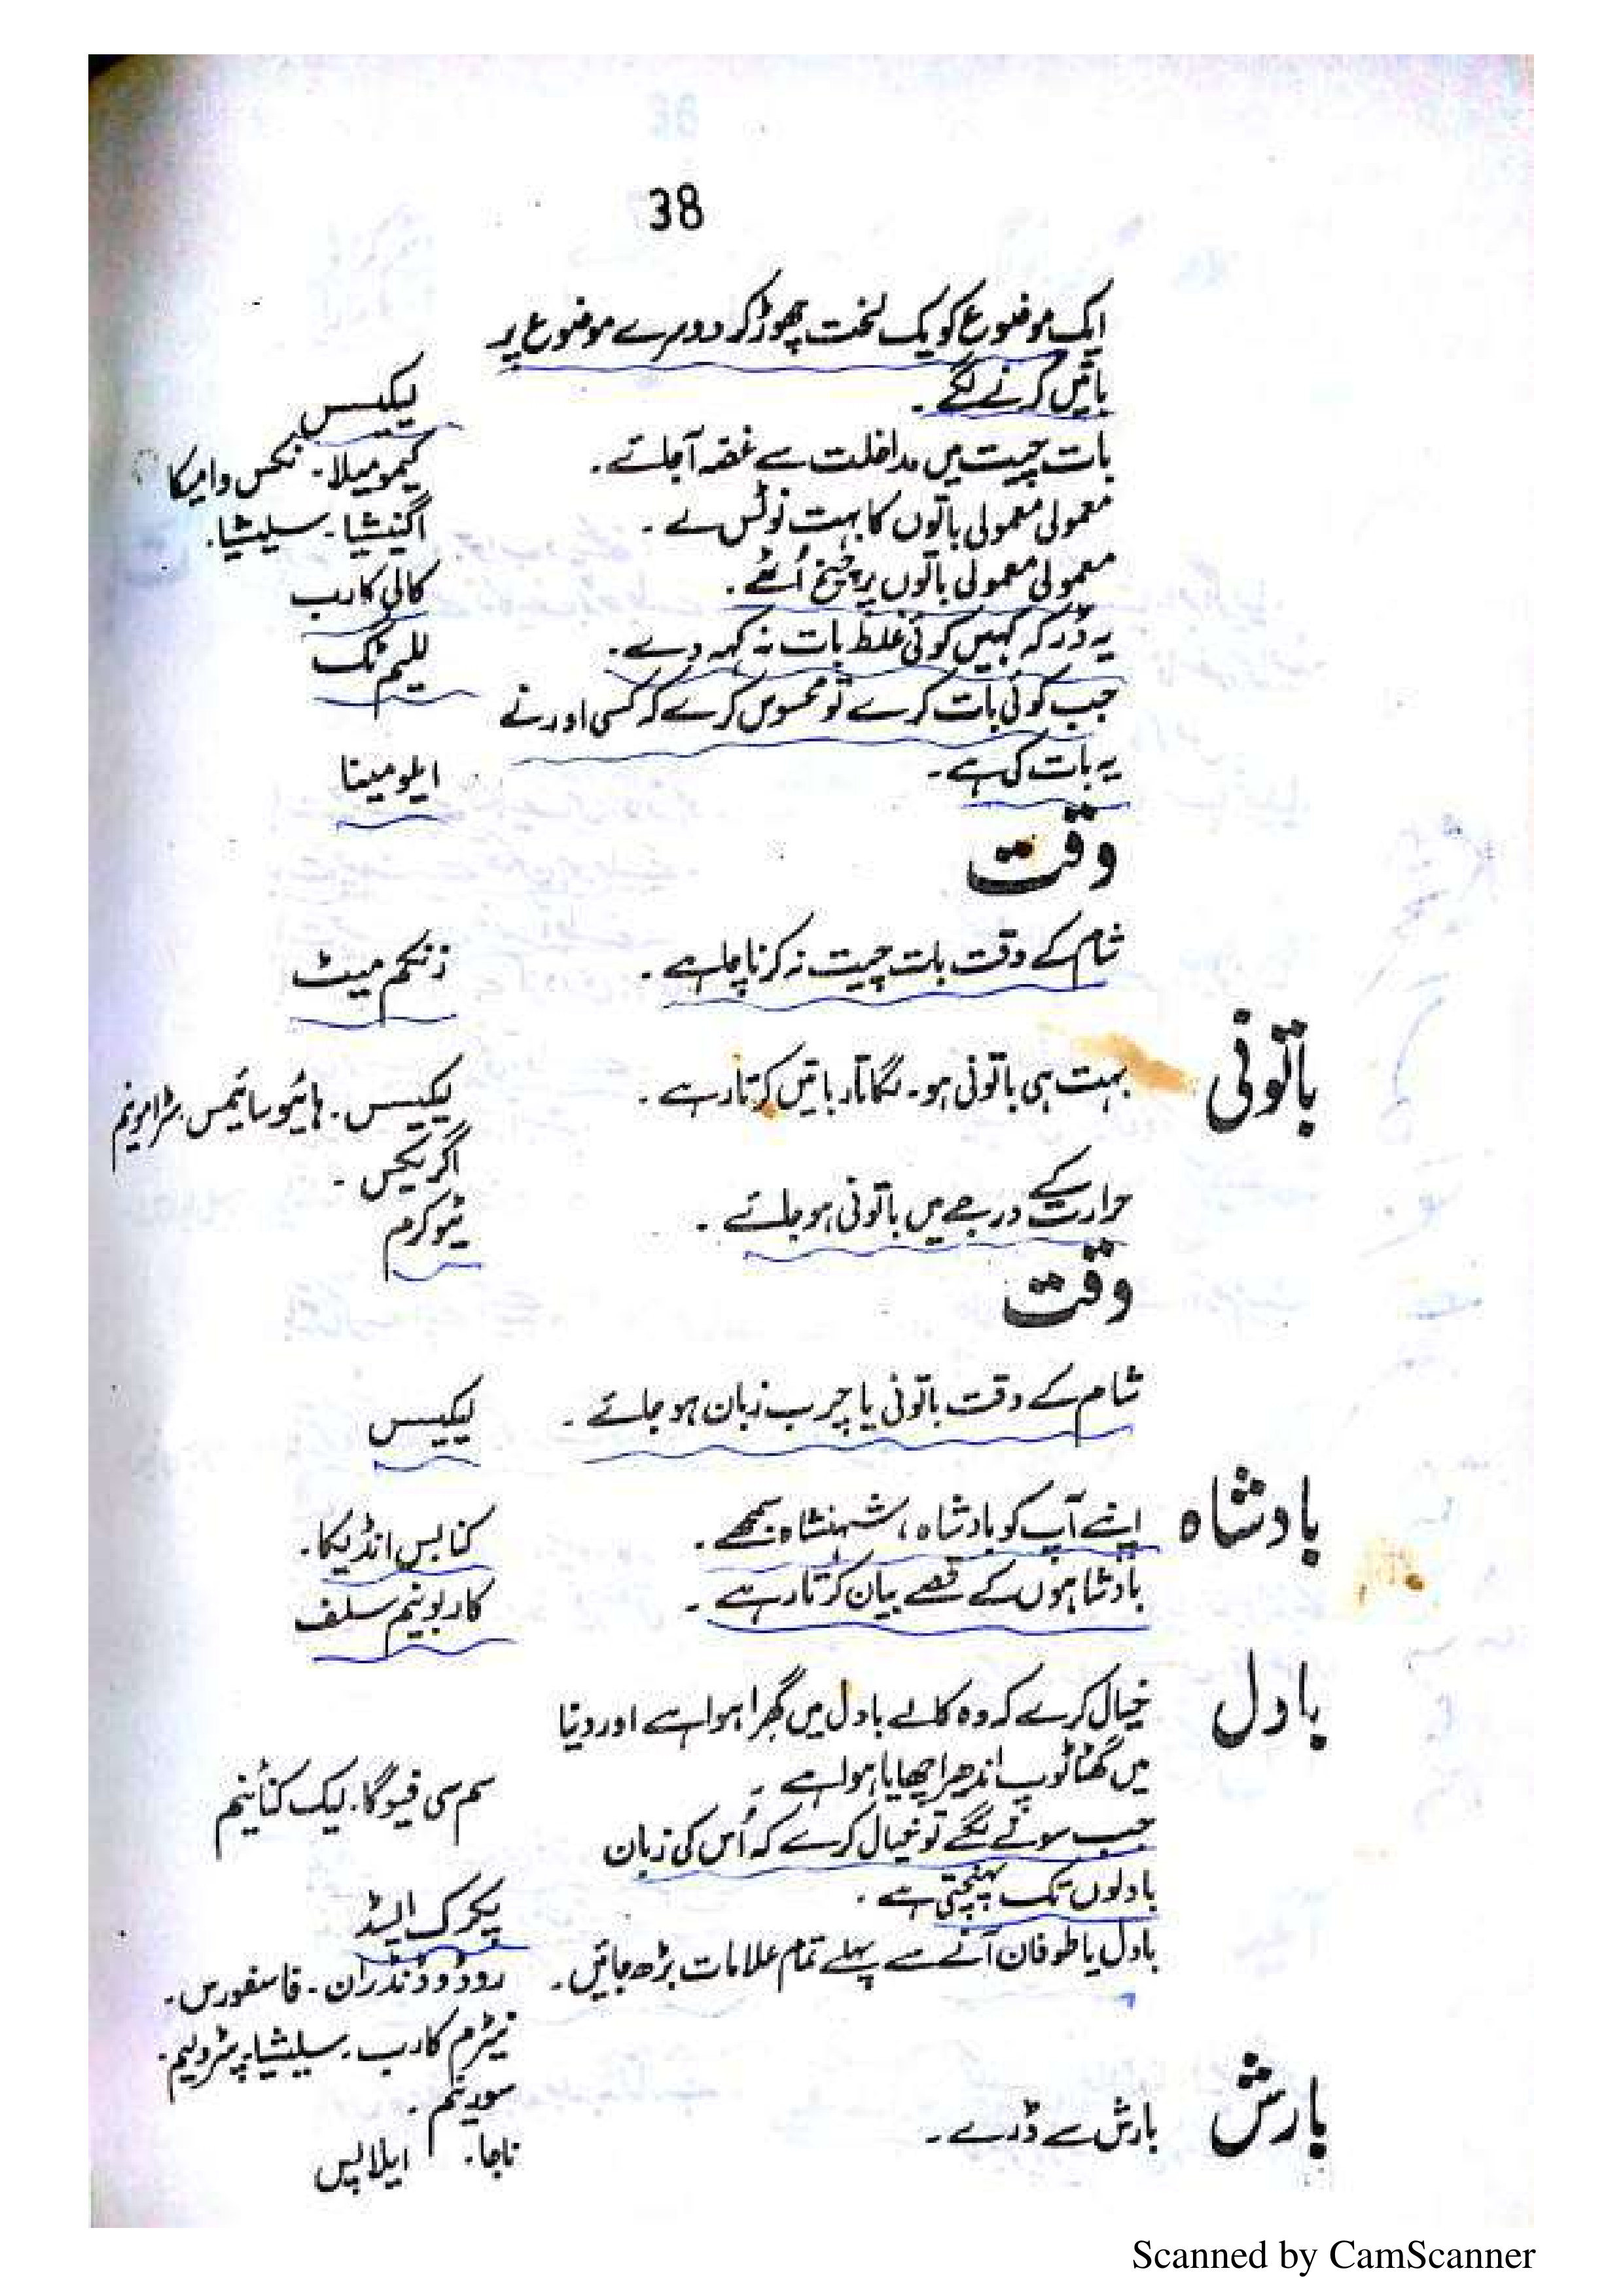 38
ایک موضوع کو یک لخت چھوڑ کر دوسرے موضوع پر
باتیں کرنے لگے۔
لیکیسس
بات چیت میں مداخلت سے غصہ آجائے۔
کیمومیلا۔ نکس وامیکا
معمولی معمولی باتوں کا بہت نوٹس لے۔
اگنیشیا۔ سلیشیا۔
معمولی معمولی باتوں پر چیخ اُٹھے۔
کالی کارب
یہ ڈر کہ کہیں کوئی غلط بات نہ کہہ دے۔
للیم ٹگ
جب کوئی بات کرے تو محسوس کرے کہ کسی اور نے
یہ بات کی ہے۔
ایلومینا
وقت
شام کے وقت بات چیت نہ کرنا چاہے۔
زنکم میٹ
باتونی
بہت ہی باتونی ہو۔ لگاتار باتیں کرتا رہے۔
لیکیسس۔ ہائیوسائیمس۔ سٹرامونیم
اگریکس۔
حرارت کے درجے میں باتونی ہو جائے۔
ٹیوکرم
وقت
شام کے وقت باتونی یا چرب زبان ہو جائے۔
لیکیسس
بادشاہ
اپنے آپ کو بادشاہ، شہنشاہ سمجھے۔
کنابس انڈیکا۔
بادشاہوں کے قصے بیان کرتا رہے۔
کاربونیم سلف
بادل
خیال کرے کہ وہ کالے بادل میں گھرا ہوا ہے اور دنیا
میں گھٹا ٹوپ اندھیرا چھایا ہوا ہے۔
سم سی فیوگا۔ لیک کنائنم
جب سونے لگے تو خیال کرے کہ اُس کی زبان
بادلوں تک پہنچتی ہے۔
پکرک ایسڈ
بادل یا طوفان آنے سے پہلے تمام علامات بڑھ جائیں۔
روڈوڈنڈران۔ فاسفورس۔
نیٹرم کارب۔ سلیشیا۔ پٹرولیم۔
سورینم۔
بارش
بارش سے ڈرے۔
ناجا۔ ایلاپس
Scanned by CamScanner